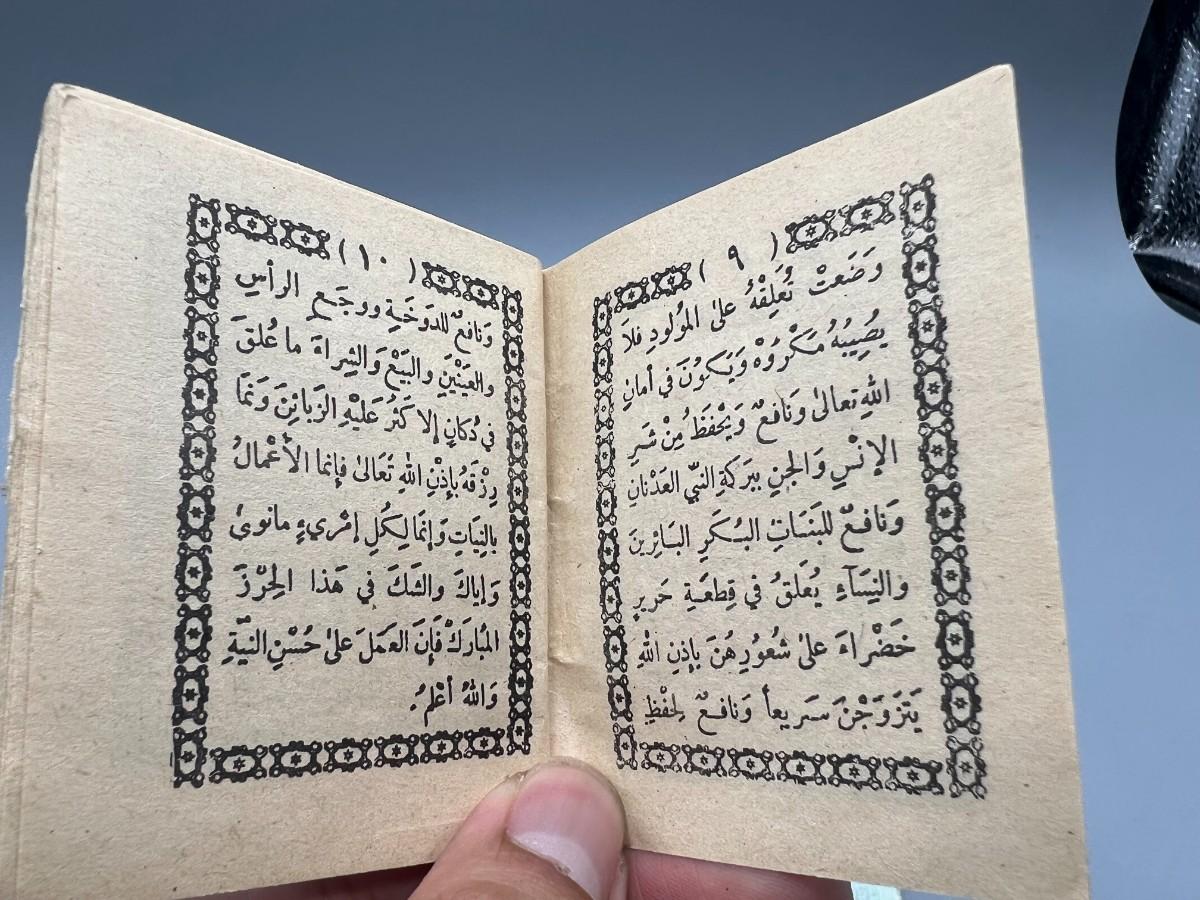 ( ٩ )
وَضَعَتْ تُعَلِقْهُ عَلىٰ المَوْلودِ فَلاَ
يُصِيبُهُ مَكْرُوْهْ وَيَكُونَ في أمانِ
اللهِ تعالىٰ وَنَافعٌ وَيْحْفَظَ مِنْ شَرِ
الإنْسِ وَالجنِ بِبَركَةِ النَبّي العَدْنانِ
وَنَافعٌ للبَنَاتِ البُكَرِ البَائِرينَ
والنِسَآءِ يُعَلقُ في قِطعَةِ حَريرٍ
خَضْراءَ علىٰ شعُورِهُنَ بإذنِ اللهِ
يَتَزَوَجْنَ سَريعاً وَنافعٌ لحِفْظِ
( ١٠ )
وَنافعٌ للدَوخَةِ ووجَعِ الرأسِ
والعَيْنَيْنِ والبَيْعْ وَالشِراءَ ما عُلقَ
في دُكانٍ إلا كَثُرَ عَليْهِ الزَبائِنَ وَنَمَا
رِزْقَهُ بإِذْنِ اللهِ تَعَالىٰ فَإنما الأَعْمالُ
بالنِيَاتِ وَإنمَا لِكُلِ إمْريءٍ مانوىٰ
وَإياكَ والشَكَ في هَذا الحِرْزَ
المُبارَكْ فَإنَ العَمَلَ علىٰ حُسْنِ النيّةِ
وَاللهُ أعْلمُ.